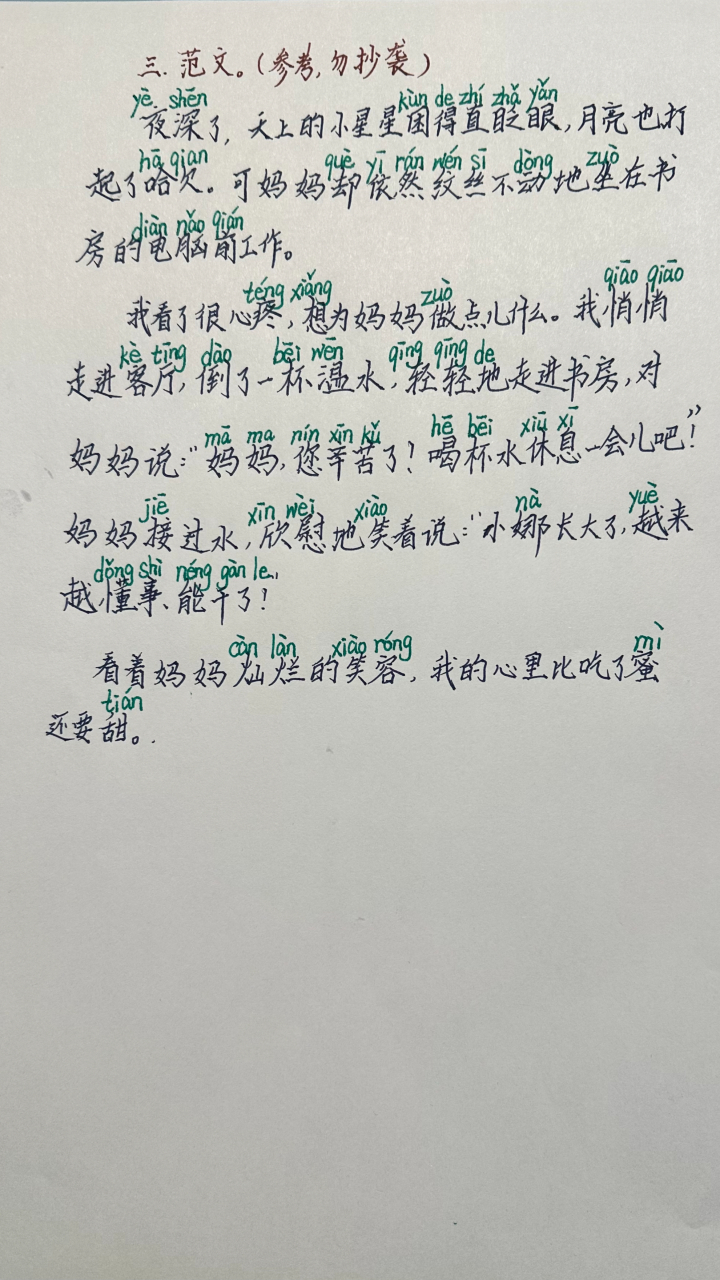 三.范文。(参考,勿抄袭)
yè shēn kùn de zhí zhǎ yǎn
夜深了,天上的小星星困得直眨眼,月亮也打
hā qian què yī rán wén sī dòng zuò
起了哈欠。可妈妈却依然纹丝不动地坐在书
diàn nǎo qián
房的电脑前工作。
téng xiǎng zuò qiāo qiāo
我看了很心疼,想为妈妈做点儿什么。我悄悄
kè tīng dào bēi wēn qīng qīng de
走进客厅,倒了一杯温水,轻轻地走进书房,对
mā ma nín xīn kǔ hē bēi xiū xī
妈妈说:“妈妈,您辛苦了!喝杯水休息一会儿吧!”
jiē xīn wèi xiào nà yuè
妈妈接过水,欣慰地笑着说:“小娜长大了,越来
dǒng shì néng gàn le
越懂事、能干了!”
càn làn xiào róng mì
看着妈妈灿烂的笑容,我的心里比吃了蜜
tián
还要甜。.